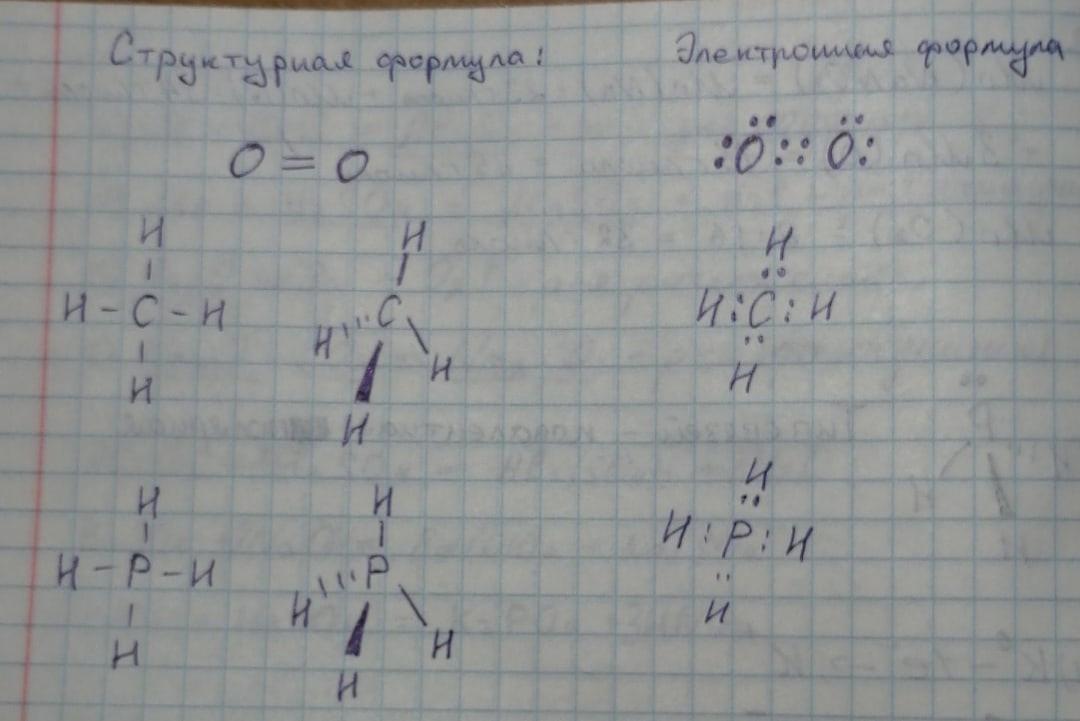 Структурная формула: Электронная формула
O = O :Ö:: Ö:
H H H
H - C - H C H : C : H
H H
H H H
H H H
H - P - H P H : P : H
H H
H H H